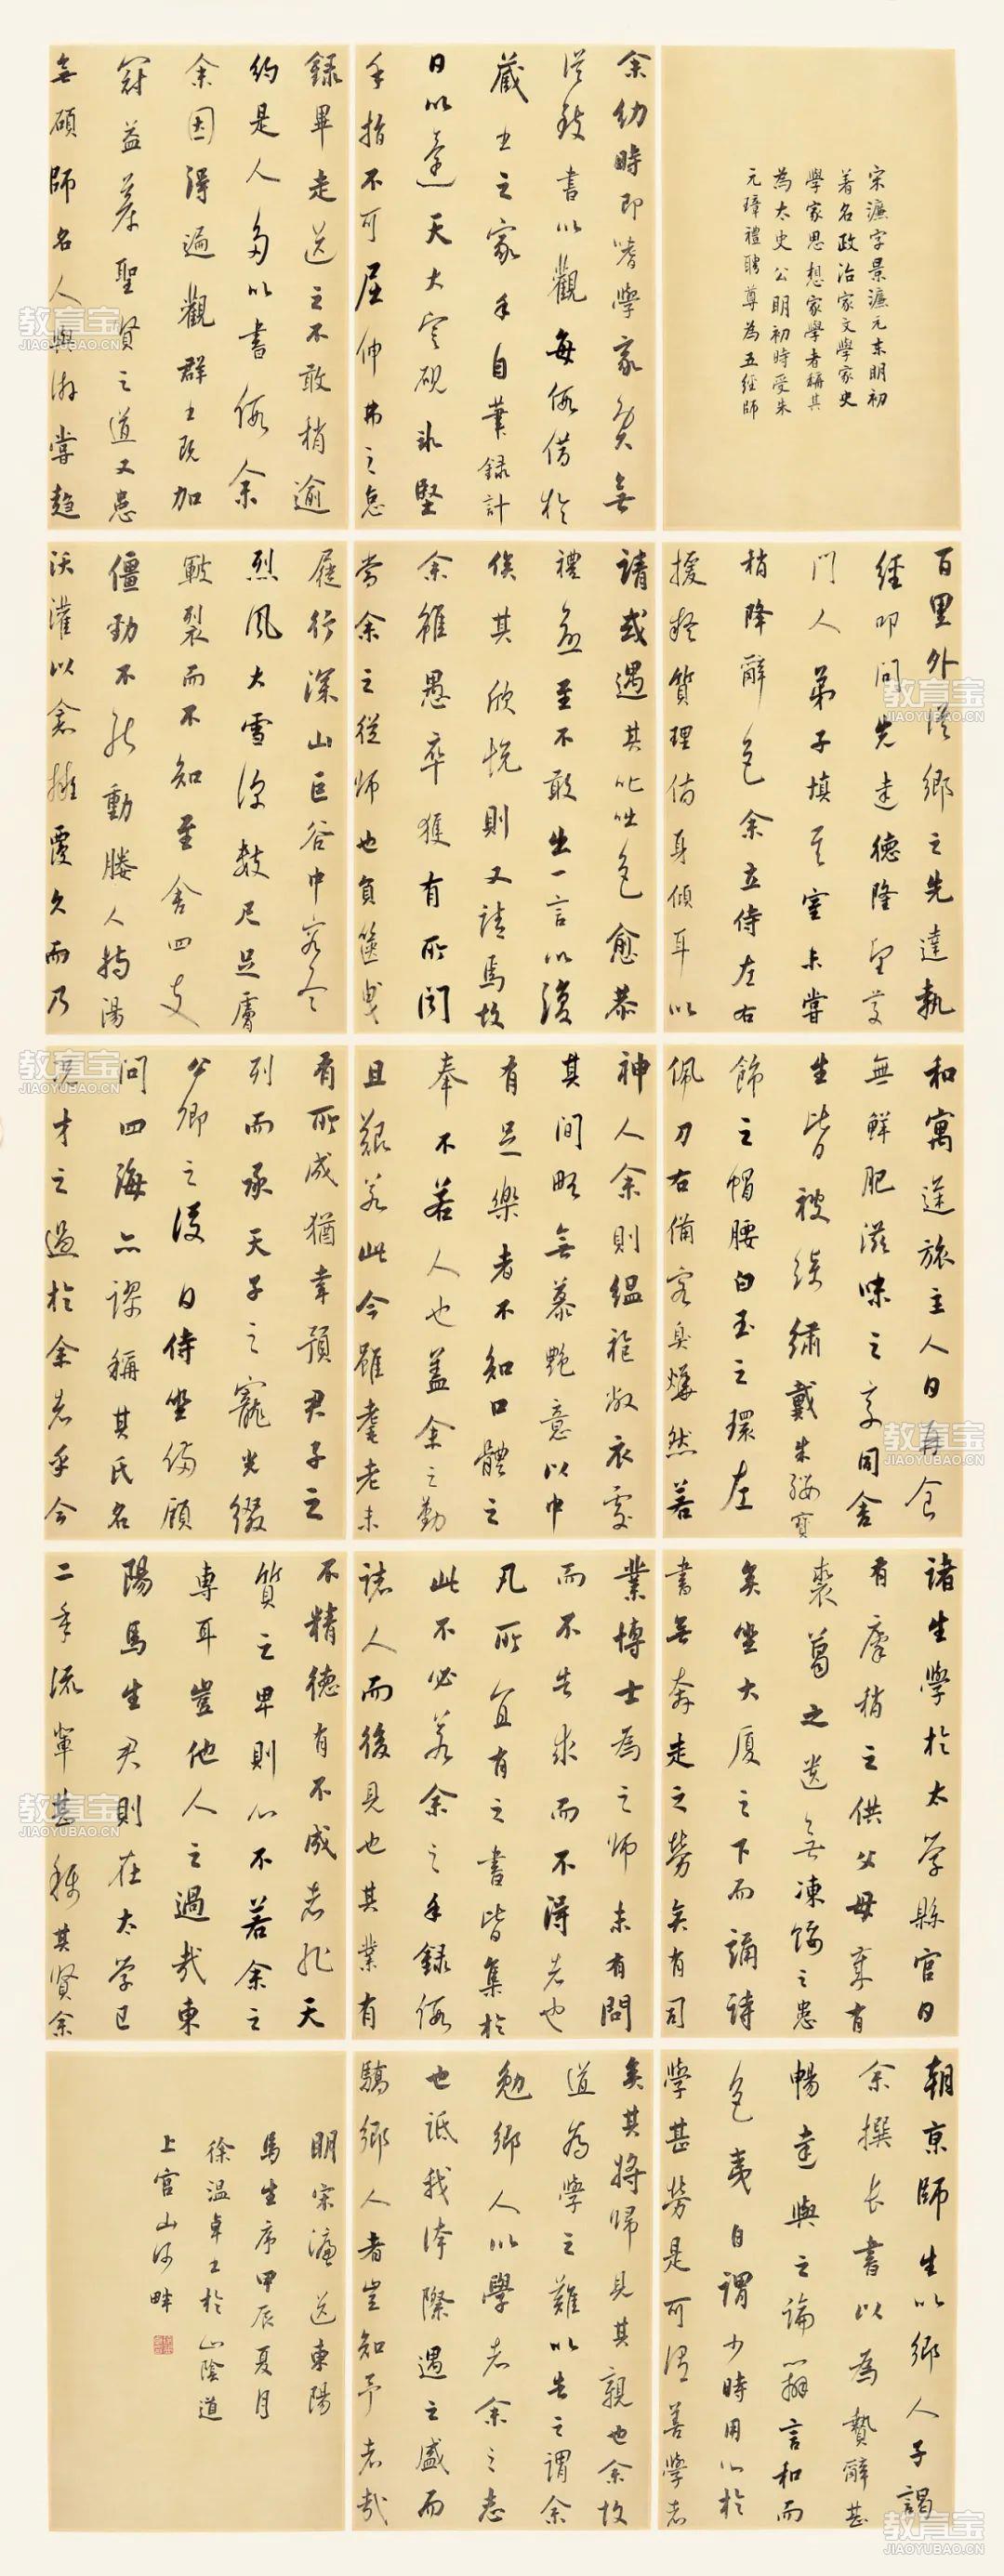 宋濂字景濂元末明初
著名政治家文學家史
學家思想家學者稱其
為太史公明初時受朱
元璋禮聘尊為五經師
余幼時即嗜學家貧無
從致書以觀每假借於
藏書之家手自筆錄計
日以還天大寒硯冰堅
手指不可屈伸弗之怠
錄畢走送之不敢稍逾
約是人多以書假余
余因得遍觀群書既加
冠益慕聖賢之道又患
無碩師名人與游嘗趨
百里外從鄉之先達執
經叩問先達德隆望尊
門人弟子填其室未嘗
稍降辭色余立侍左右
援疑質理俯身傾耳以
請或遇其叱咄色愈恭
禮愈至不敢出一言以復
俟其欣悅則又請焉故
余雖愚卒獲有所聞
當余之從師也負篋曳
屣行深山巨谷中窮冬
烈風大雪深數尺足膚
皸裂而不知至舍四支
僵勁不能動媵人持湯
沃灌以衾擁覆久而乃
和寓逆旅主人日再食
無鮮肥滋味之享同舍
生皆被綺繡戴朱纓寶
飾之帽腰白玉之環左
佩刀右備容臭燁然若
神人余則縕袍敝衣處
其間略無慕艷意以中
有足樂者不知口體之
奉不若人也蓋余之勤
且艱若此今雖耄老未
有所成猶幸預君子之
列而承天子之寵光綴
公卿之後日侍坐備顧
問四海亦謬稱其氏名
況才之過於余者乎今
諸生學於太學縣官日
有廩稍之供父母歲有
裘葛之遺無凍餒之患
矣坐大廈之下而誦詩
書無奔走之勞矣有司
業博士為之師未有問
而不告求而不得者也
凡所宜有之書皆集於
此不必若余之手錄假
諸人而後見也其業有
不精德有不成者非天
質之卑則心不若余之
專耳豈他人之過哉東
陽馬生君則在太學已
二年流輩甚稱其賢余
朝京師生以鄉人子謁
余撰長書以為贄辭甚
暢達與之論辯言和而
色夷自謂少時用心於
學甚勞是可謂善學者
矣其將歸見其親也余故
道為學之難以告之謂余
勉鄉人以學者余之志
也詆我誇際遇之盛而
驕鄉人者豈知予者哉
明宋濂送東陽
馬生序甲辰夏月
徐溫卓書於山陰道
上官山河畔
教育宝
JIAOYUBAO.CN
教育宝
JIAOYUBAO.CN
教育宝
JIAOYUBAO.CN
教育宝
JIAOYUBAO.CN
教育宝
JIAOYUBAO.CN
教育宝
JIAOYUBAO.CN